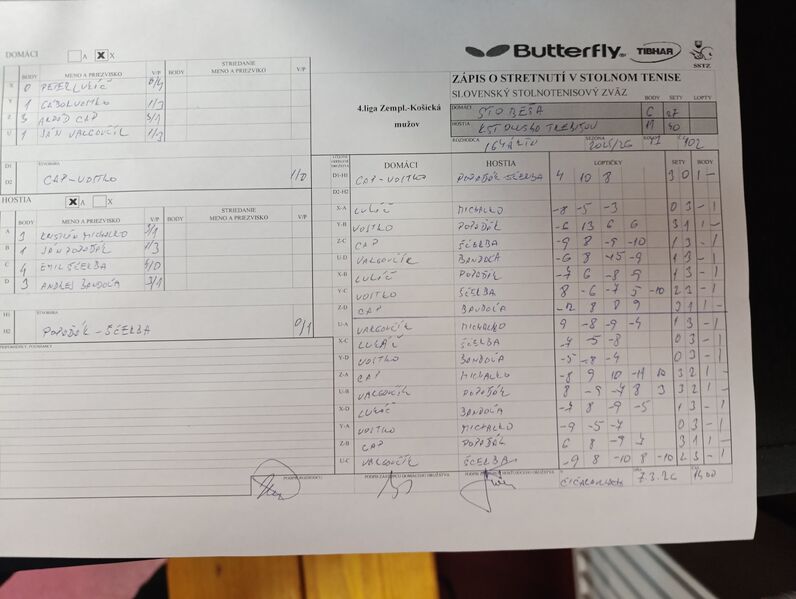 Butterfly TIBHAR SSTZ
ZÁPIS O STRETNUTÍ V STOLNOM TENISE
SLOVENSKÝ STOLNOTENISOVÝ ZVÄZ
4.liga Zempl.-Košická mužov
BODY SETY LOPTY
DOMÁCI STO BEŠA 6 27
HOSTIA 11 40
ROZHODCA SEZÓNA 2025/26 KOLO
DOMÁCI A X X
BODY MENO A PRIEZVISKO V/P BODY STRIEDANIE MENO A PRIEZVISKO V/P
X 0 PETER LUKÁČ 0/4
Y 1 GABOL VOITKO 1/3
Z 3 CAP 3/1
U 1 JÁN VALGOVČÍK 1/3
D1 ŠTVORHRA
D2 CAP-VOITKO 1/0
HOSTIA X A X
BODY MENO A PRIEZVISKO V/P BODY STRIEDANIE MENO A PRIEZVISKO V/P
A 3 KRISTIÁN MICHALKO 3/1
B 1 JÁN POPOĎÁK 1/3
C 4 EMIL ŠČERBA 4/0
D 3 ANDREJ BANDOĽA 3/1
H1 ŠTVORHRA
H2 POPOĎÁK-ŠČERBA 0/1
DOMÁCI HOSTIA LOPTIČKY SETY BODY
D1-H1 CAP-VOITKO POPOĎÁK-ŠČERBA 4 10 8 3 0 1 -
D2-H2
X-A LUKÁČ MICHALKO -8 -5 -3 0 3 - 1
Y-B VOITKO POPOĎÁK -6 13 6 6 3 1 1 -
Z-C CAP ŠČERBA -9 8 -9 -10 1 3 - 1
U-D VALGOVČÍK BANDOĽA -6 8 -15 -9 1 3 - 1
X-B LUKÁČ POPOĎÁK -7 6 -8 -9 1 3 - 1
Y-C VOITKO ŠČERBA 8 -6 -7 5 -10 2 3 - 1
Z-D CAP BANDOĽA -12 8 8 9 3 1 1 -
U-A VALGOVČÍK MICHALKO 9 -8 -9 -4 1 3 - 1
X-C LUKÁČ ŠČERBA -7 -5 -8 0 3 - 1
Y-D VOITKO BANDOĽA -5 -8 -4 0 3 - 1
Z-A CAP MICHALKO -8 9 10 -11 10 3 2 1 -
U-B VALGOVČÍK POPOĎÁK 8 -9 -7 8 3 3 2 1 -
X-D LUKÁČ BANDOĽA -7 8 -9 -5 1 3 - 1
Y-A VOITKO MICHALKO -9 -5 -7 0 3 - 1
Z-B CAP POPOĎÁK 6 8 -9 7 3 1 1 -
U-C VALGOVČÍK ŠČERBA -9 8 -10 8 -10 2 3 - 1
PRIPOMIENKY, PODPISY
PODPIS ROZHODCU
PODPIS ZÁSTUPCU DOMÁCEHO DRUŽSTVA
PODPIS ZÁSTUPCU HOSŤUJÚCEHO DRUŽSTVA
7.3.26